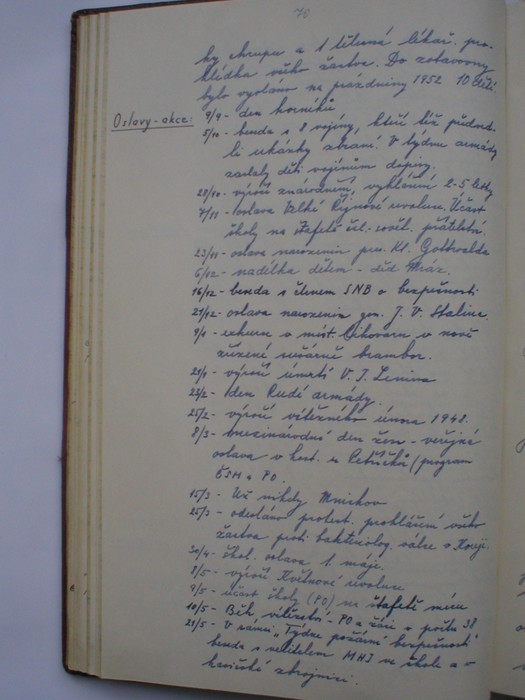 70
ky chrupu a 1 tělesná lékař. pro-
hlídka všeho žactva. Do zotavovny
bylo vysláno na prázdniny 1952 10 dětí.
Oslavy-akce:
9/9 - den horníků
5/10 - beseda s 8 vojíny, kteří též předved-
li ukázky zbraní. V týdnu armády
zaslaly děti vojínům dopisy.
28/10 - výročí znárodnění, vyhlášení 2-5letky
7/11 - oslava Velké Říjnové revoluce. Účast
školy na štafetě čsl.-sovět. přátelství.
23/11 - oslava narozenin pres. Kl. Gottwalda
6/12 - nadílka dětem - děd Mráz.
16/12 - beseda s členem SNB o bezpečnosti
21/12 - oslava narozenin gen. J. V. Stalina
9/1 - exkurse v míst. lihovaru v nově
zřízené sušárně brambor.
21/1 - výročí úmrtí V. I. Lenina
22/2 - den Rudé armády.
25/2 - výročí vítězného února 1948.
8/3 - mezinárodní den žen - veřejná
oslava v host. u Petrůčků (program
ČSM a PO.
15/3 - Už nikdy Mnichov
25/3 - odesláno protest. prohlášení všeho
žactva proti bakteriolog. válce v Koreji.
30/4 - škol. oslava 1. máje.
8/5 - výročí Květnové revoluce
9/5 - účast školy (PO) na štafetě míru
10/5 - Běh vítězství - PO a žáci v počtu 38
21/5 - V rámci "Týdne požární bezpečnosti"
beseda s velitelem MHJ ve škole a -
hasičské zbrojnici.